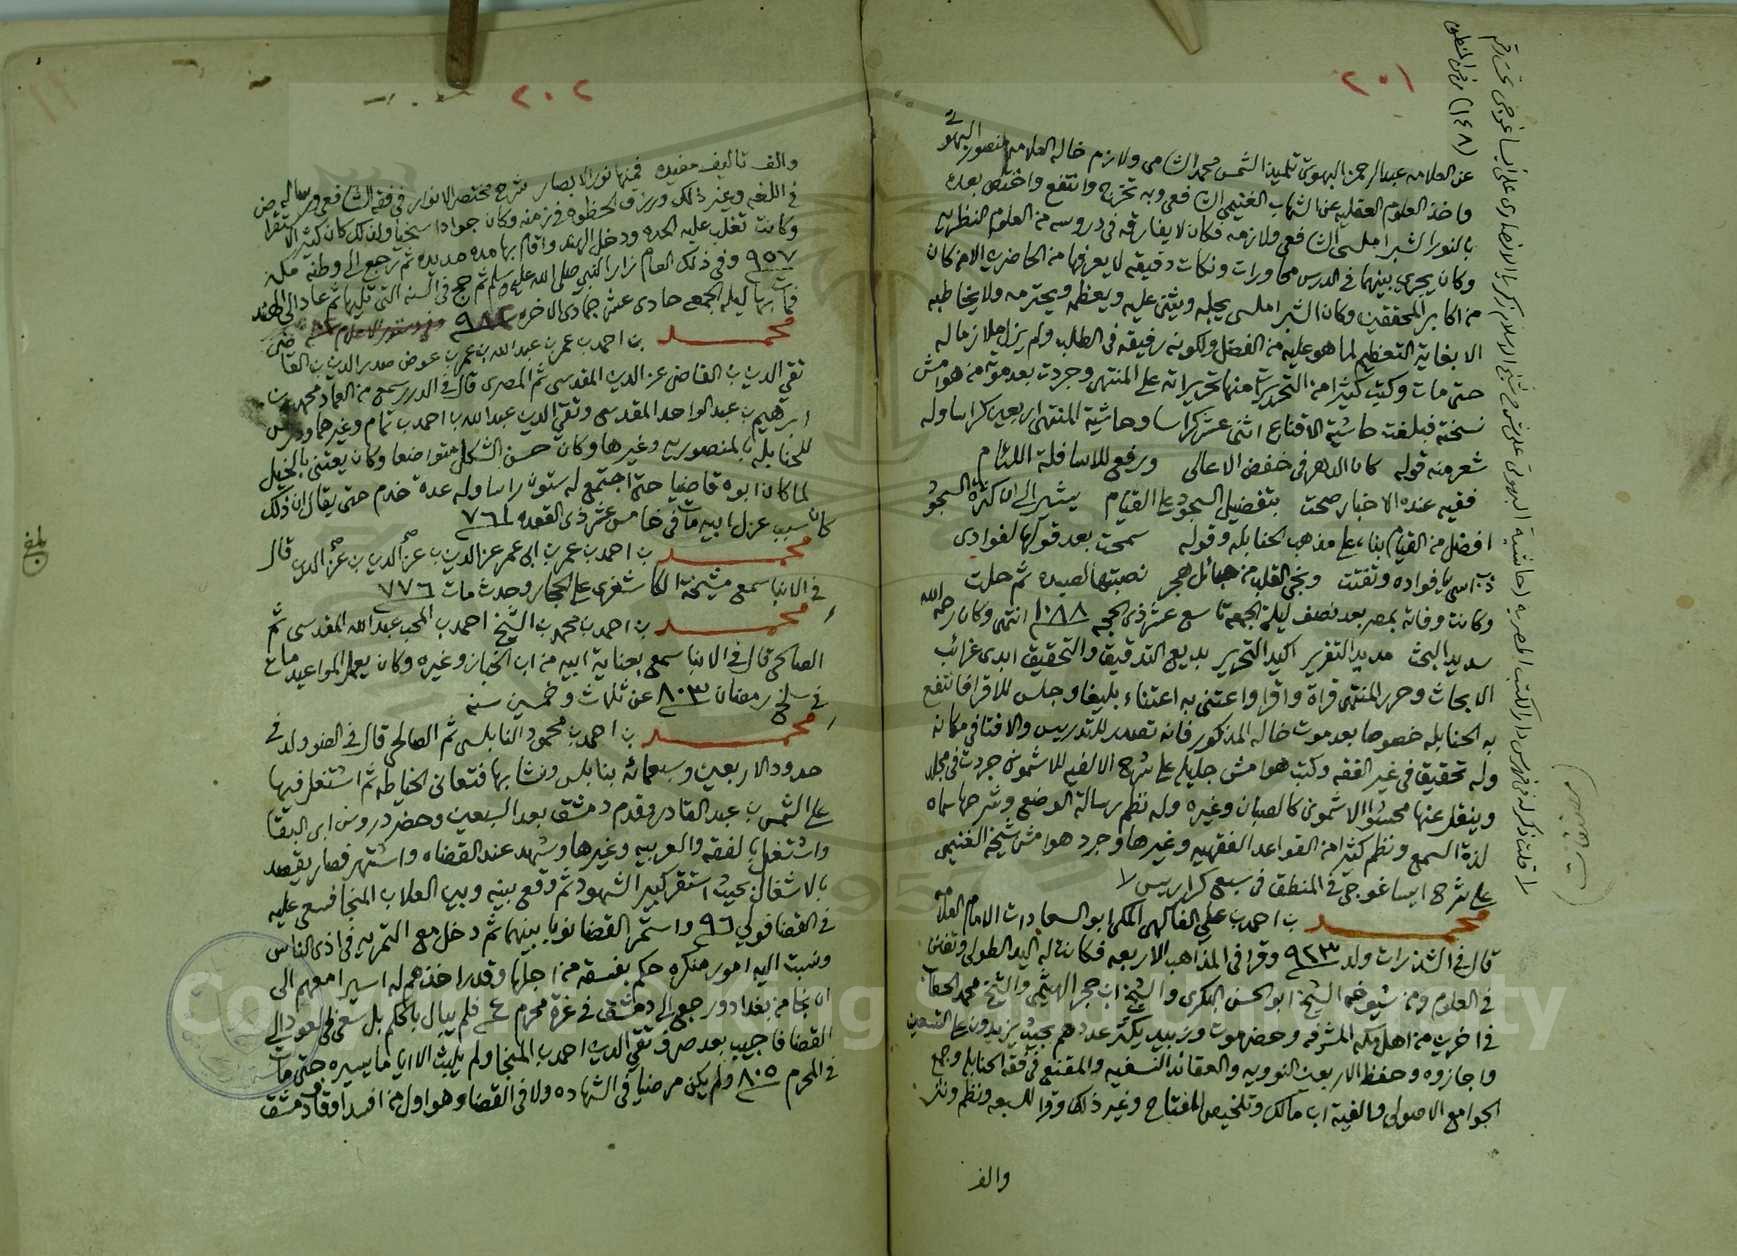 ٢٠١
عن العلامه عبدالرحمن البهوتي تلميذ الشمس محمد الشامي ولازم خاله العلامه منصور البهوتي
واخذ العلوم العقليه عن الشهاب الغنيمي الشافعي وبه تخرج وانتفع واختص بعده
بالنور الشبراملسي الشافعي ولازمه فكان لا يفارقه في دروسه من العلوم النظريه
وكان يجري بينهما في الدرس محاورات ونكات دقيقه لا يعرفها من الحاضرين الا من كان
من اكابر المحققين وكان الشبراملسي يجله ويثني عليه ويعظمه ويحترمه ولا يخاطبه
الا بغاية التعظيم لما هو عليه من الفضل ولكونه رفيقه في الطلب ولم يزل ملازما له
حتى مات وكتب كثيرا من التحريرات منها تحريراته على المنتهى وجردت بعد موته من هوامش
نسخته فبلغت حاشية الاقناع اثنى عشر كراسا وحاشية المنتهى اربعين كراسا وله
شعر منه قوله كان الدهر في خفض الاعالي ورفع للاسافلة اللئام
فقيه عنده الاخبار صحت بتفضيل السجود على القيام يشير الى ان كثرة السجود
افضل من القيام بناء على مذهب الحنابله وقوله سمحت بعد قولها لفوادي
ذب اسى يا فواده وتفتت ونجى القلب من حبائل هجر نصبتها لصيده ثم حلت
وكانت وفاته بمصر بعد نصف ليلة الجمعة تاسع عشر ذي الحجه ١٠٨٨ انتهى وكان رحمه الله
سديد البحث مديد التقرير اكيد التحرير بديع التدقيق والتحقيق ابدى غرائب
الابحاث وحرر المنتهى قراة واقرا واعتنى به اعتناء بليغا وجلس للاقرا فانتفع
به الحنابله خصوصا بعد موت خاله المذكور فانه تصدر للتدريس والافتا في مكانه
وله تحقيق في غير الفقه وكتب هوامش جليله على شرح الالفيه للاشموني جردت في مجلد
وينقل عنها محشوا الاشموني كالصبان وغيره وله نظم رسالة الوضع وشرحها سماه
لذة السمع ونظم كثيرا من القواعد الفقهيه وغيرها وجرد هوامش شيخه الغنيمي
على شرح ايساغوجي في المنطق في سبع كراريس لا
محمد بن احمد بن علي الفاكهي المكي ابو السعادات الامام العلامه
قال في الشذرات ولد ٩٢٣ وقرا في المذاهب الاربعه فكانت له اليد الطولى وتفنن
في العلوم ومن شيوخه الشيخ ابو الحسن البكري والشيخ ابن حجر الهيثمي والشيخ محمد الحطاب
في اخرين من اهل مكه المشرفه وحضرموت وزبيد يكثر عددهم بحيث يزيدون على التسعين
واجازوه وحفظ الاربعين النوويه والعقائد النسفيه والمقنع في فقه الحنابله وجمع
الجوامع الاصولي والفية ابن مالك وتلخيص المفتاح وغير ذلك وقرا للسبعه ونظم ونثر
والف
لا قلت ذكر له في فهرس دار الكتب المصريه (حاشية البهوتي على شرح شيخ الاسلام زكريا الانصاري على ايساغوجي تحت رقم
(١٤٨) من فن المنطق
٢٠٢
والف تاليف مفيده فمنها نور الابصار شرح مختصر الانوار في فقه الشافعي ورساله
في اللغه وغير ذلك ورزق الحظوه في زمنه وكان جوادا سخيا ولذلك كان كثير الاستقراض
وكانت تغلب عليه الحده ودخل الهند واقام بها مده مديده ثم رجع الى وطنه مكه
٩٥٧ وفي ذلك العام زار النبي صلى الله عليه وسلم ثم حج في السنه التي تليها ثم عاد الى الهند
فمات بها ليلة الجمعه حادي عشر جمادى الاخره
محمد بن احمد بن عمر بن عبدالله بن عمر بن عوض صدر الدين بن القاضي
تقي الدين بن القاضي عز الدين المقدسي ثم المصري قال في الدرر سمع من العماد محمد بن
ابرهيم بن عبدالواحد المقدسي وتقي الدين عبدالله بن احمد بن تمام وغيرهما ودرس
للحنابله بالمنصوريه وغيرها وكان حسن الشكل متواضعا وكان يعتني بالخيل
لما كان ابوه قاضيا حتى اجتمع له ستون راسا وله عدة خدم حتى يقال ان ذلك
كان سبب عزل ابيه مات في خامس عشر ذي القعده ٧٦١
محمد بن احمد بن عمر بن ابي عمر عز الدين بن عز الدين بن عز الدين قال
في الانبا سمع مشيخة الكاشغري على الحجار وحدث مات ٧٧٦
محمد بن احمد بن محمد بن الشيخ احمد بن المحب عبدالله المقدسي ثم
الصالحي قال في الانبا سمع بعناية ابيه من ابن الخباز وغيره وكان يعمل المواعيد مات
في سلخ رمضان ٨٠٣ عن ثلاث وخمسين سنه
محمد بن احمد بن محمود النابلسي ثم الصالحي قال في الضوء ولد في
حدود الاربعين وسبعمائه بنابلس ونشا بها فتعانى الخياطه ثم اشتغل فيها
على الشمس بن عبدالقادر وقدم دمشق بعد السبعين وحضر دروس ابي البقا
واشتغل بالفقه والعربيه وغيرها وشهد عند القضاه واشتهر فصار يقصد
بالاشغال بحيث استقر كبير الشهود ثم وقع بينه وبين العلاء بن المنجا فسعى عليه
في القضا فولي ٩٦ واستمر القضا نوبا بينهما ثم دخل مع التمريه في اذى الناس
ونسبت اليه امور منكره حكم بفسقه من اجلها وقدر اخذهم له اسيرا معهم الى
ان نجا من بغداد ورجع الى دمشق في غرة محرم فلم يبال بالحكم بل سعى في العود الى
القضا فاجيب بعد صرف تقي الدين احمد بن المنجا ولم يلبث الا اياما يسيره حتى مات
في المحرم ٨٠٥ ولم يكن مرضيا في الشهاده ولا في القضا وهو اول من افسد اوقاف دمشق
بلغ
Copyright © King Saud University
1957